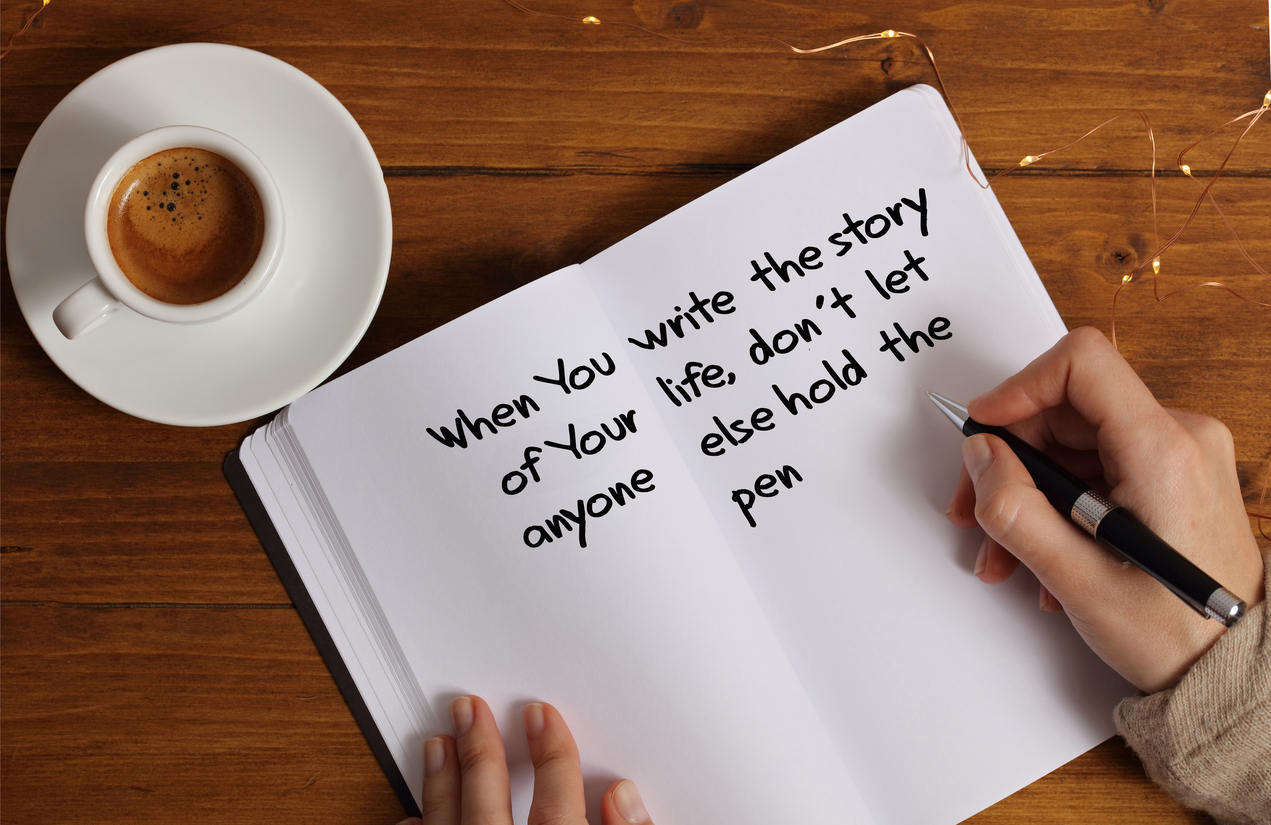 When You write the story
of Your life, don't let
anyone else hold the
pen